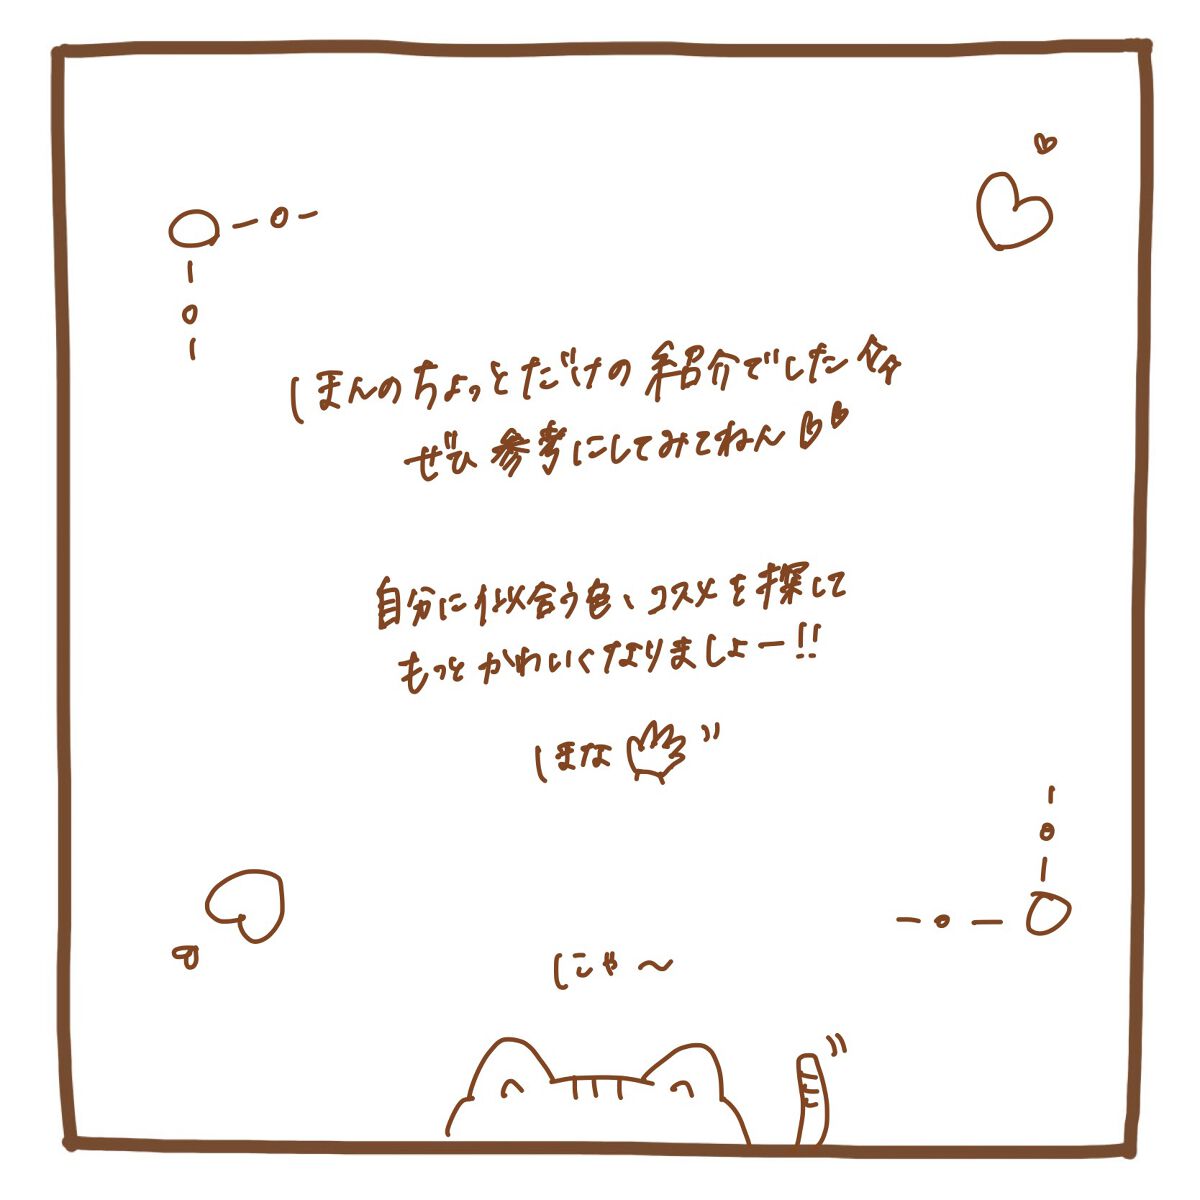 ほんのちょっとだけの紹介でした☆☆
ぜひ参考にしてみてねん♡♡
自分に似合う色、コスメを探して
もっとかわいくなりましょー!!
ほな
にゃ〜